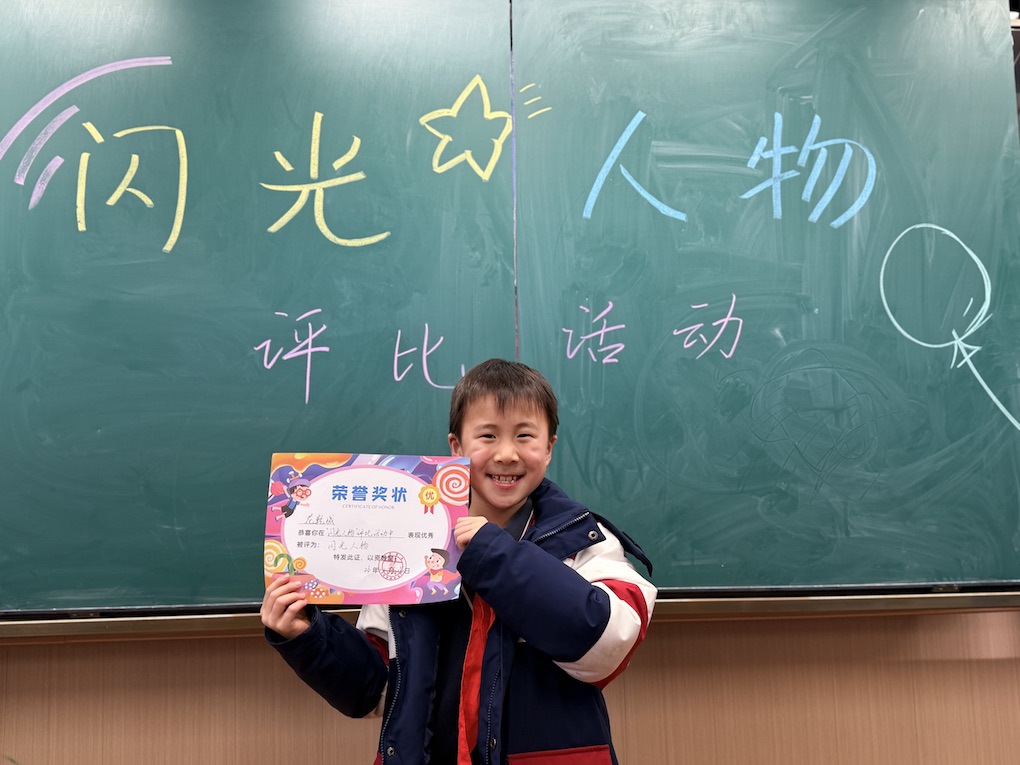 闪光人物
评比活动
荣誉奖状
优
CERTIFICATE OF HONOR
恭喜你在 闪光人物评比活动中 表现优秀
被评为： 闪光人物
特发此证，以资鼓励！